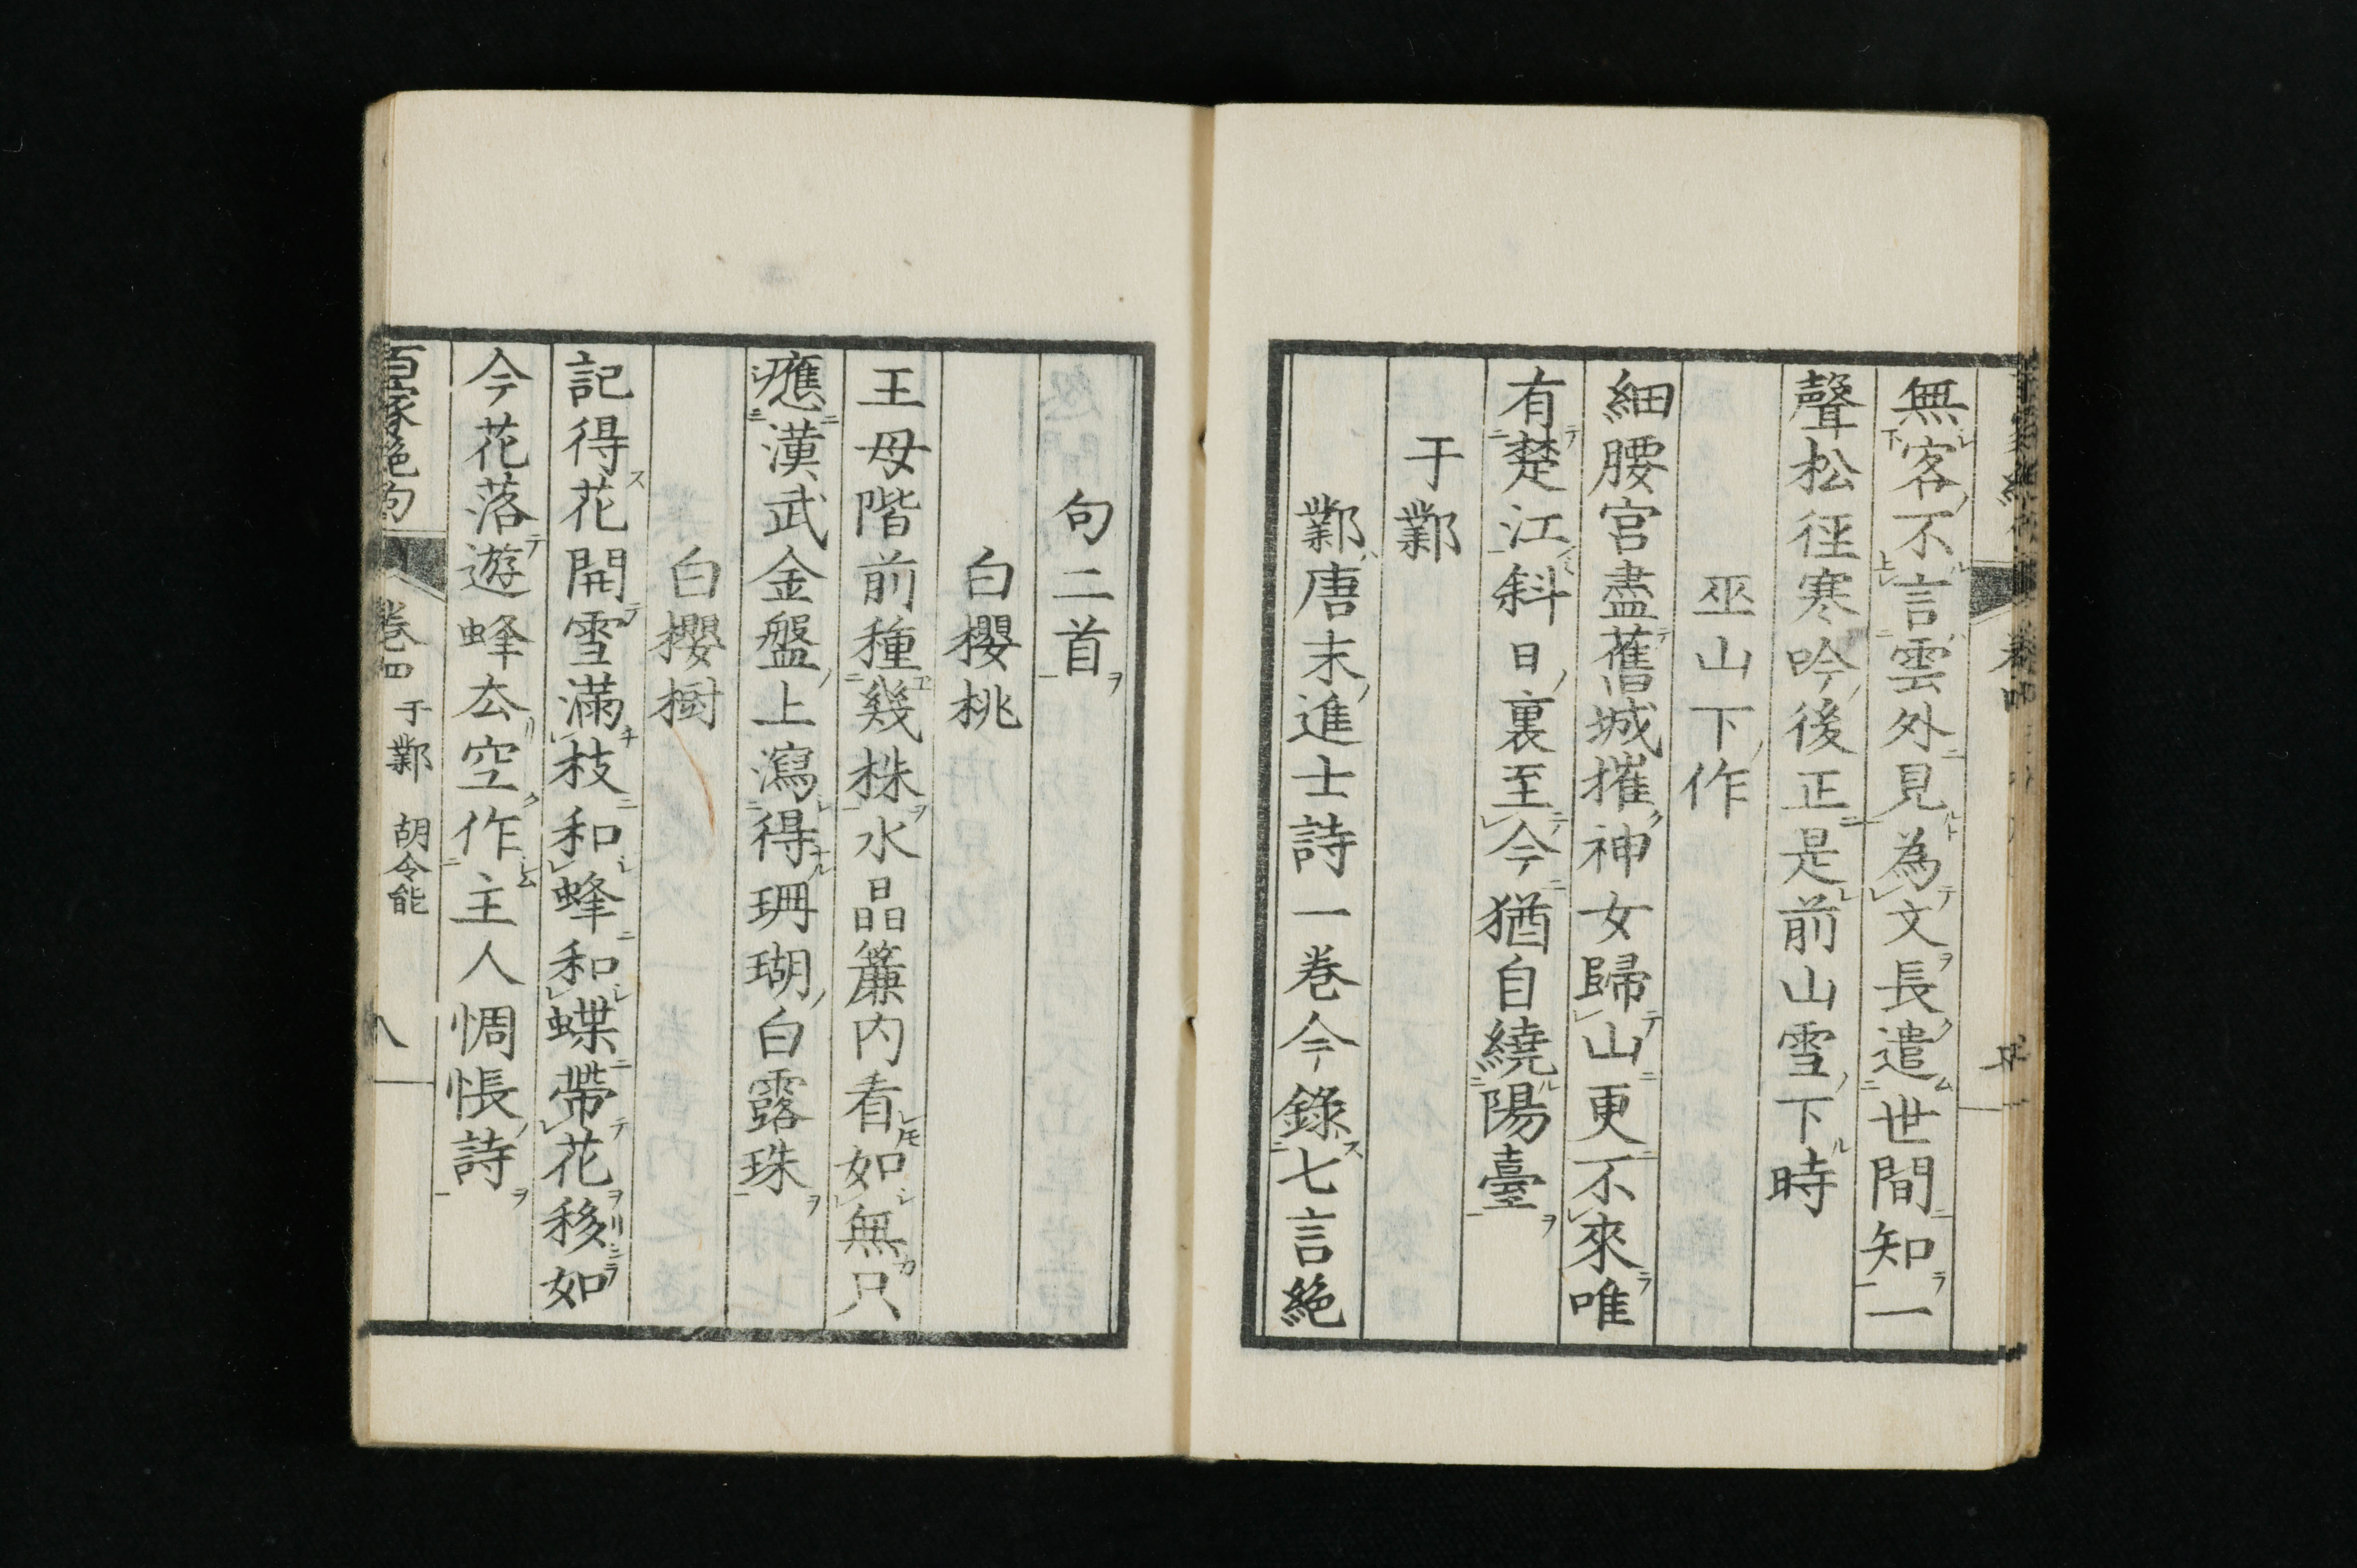 無客不言雲外見為文長遣世間知一
聲松徑寒吟後正是前山雪下時
巫山下作
細腰宮盡舊城摧神女歸山更不來唯
有楚江斜日裏至今猶自繞陽臺
于鄴
鄴唐末進士詩一巻今錄七言絕
句二首
白櫻桃
王母階前種幾株水晶簾内看如無只
應漢武金盤上瀉得珊瑚白露珠
白櫻樹
記得花開雪滿枝和蜂和蝶帶花移如
今花落遊蜂去空作主人惆悵詩
百家絕句 卷四 于鄴 胡令能 八